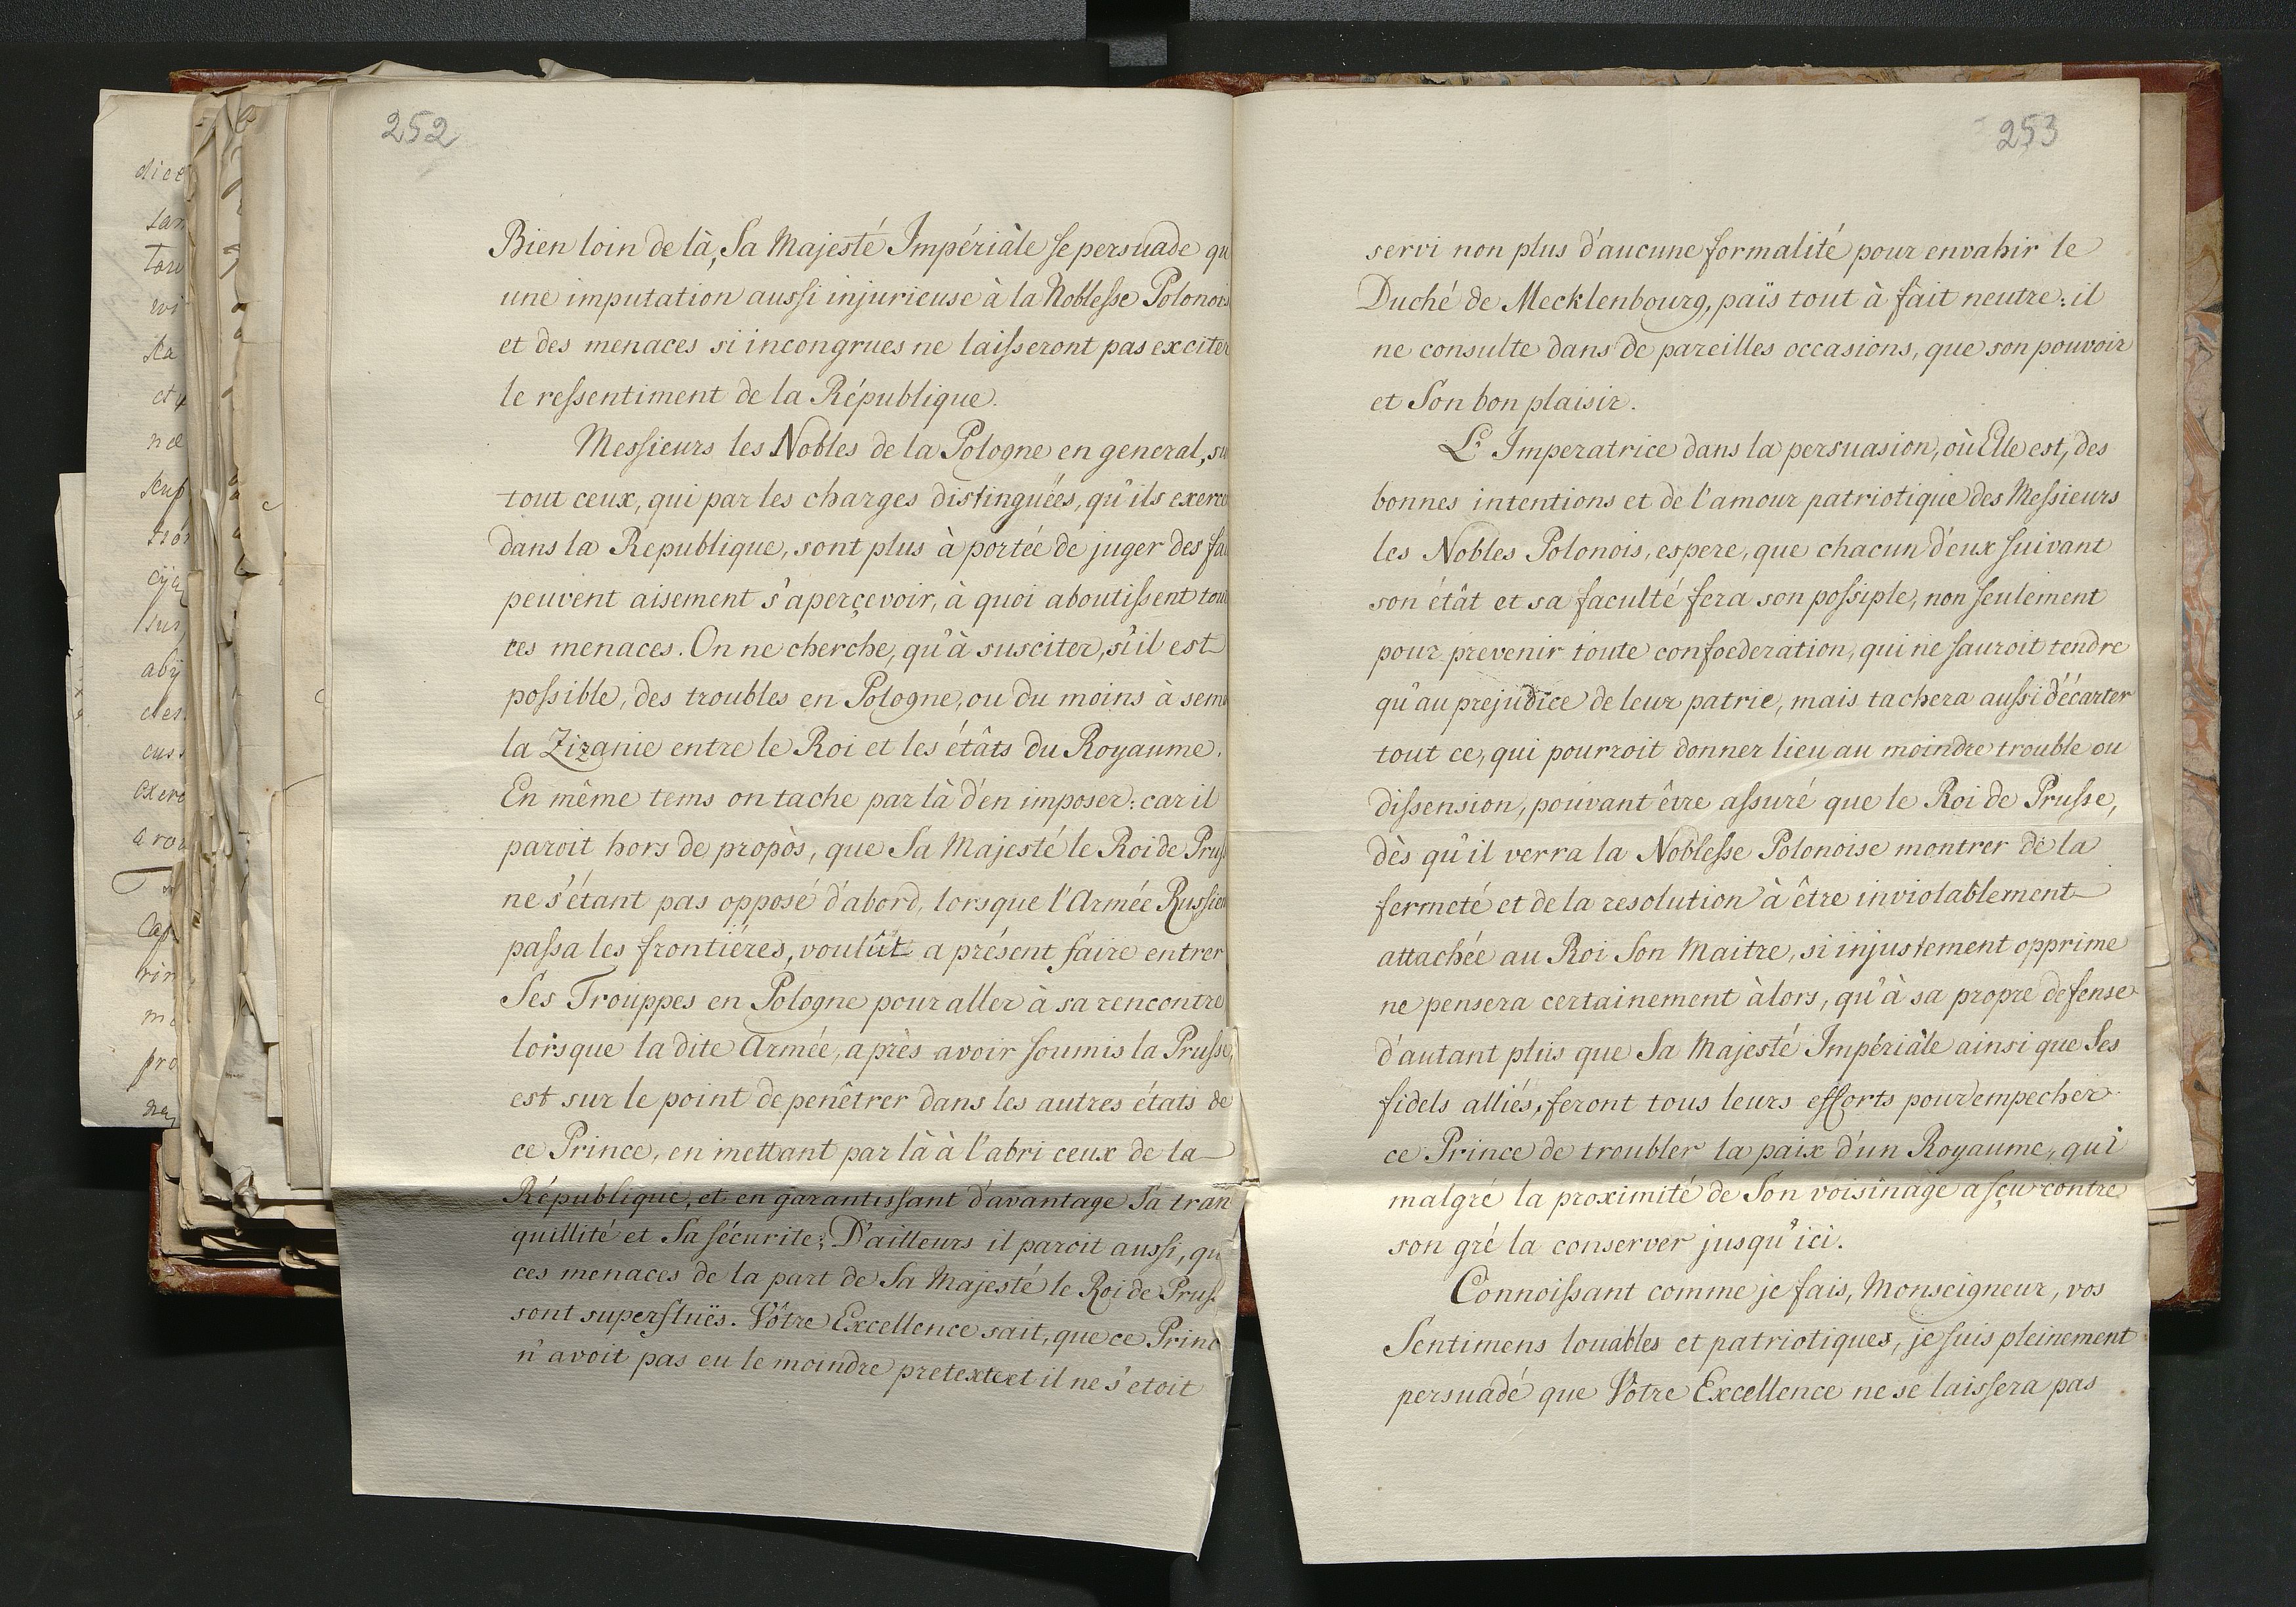 252
Bien loin de là, Sa Majesté Impériàle se persuade qu
une imputation aussi injurieuse à la Noblesse Polonois
et des menaces si incongrues ne laisseront pas exciter
le ressentiment de la République.
Messieurs les Nobles de la Pologne en general, su
tout ceux, qui par les charges distinguées, qu'ils exerce
dans la Republique, sont plus à portée de juger des fai
peuvent aisement s'aperçevoir, à quoi aboutissent tout
ces menaces. On ne cherche, qu'à susciter, s'il est
possible, des troubles en Pologne, ou du moins à seme
la Zizanie entre le Roi et les étâts du Royaume.
En même tems on tache par là d'en imposer: car il
paroit hors de propòs, que Sa Majesté le Roi de Pruss
ne s'étant pas opposé d'abord, lorsque l'Armée Russien
passa les frontiéres, voulût a présent faire entrer
Ses Trouppes en Pologne pour aller à sa rencontre
lorsque la dite Armée, après avoir soumis la Prusse,
est sur le point de penêtrer dans les autres états de
ce Prince, en mettant par là à l'abri ceux de la
République, et en garantissant d'avantage Sa tran
quillité et Sa sécurite; D'ailleurs il paroit aussi, qu
ces menaces de la part de Sa Majesté le Roi de Pruss
sont superfluës. Vôtre Excellence sait, que ce Princ
n'avoit pas eu le moindre pretexte et il ne s'etoit
253
servi non plus d'aucune formalité pour envahir le
Duché de Mecklenbourg, païs tout à fait neutre: il
ne consulte dans de pareilles occasions, que son pouvoir
et Son bon plaisir.
L'Imperatrice dans la persuasion, où Elle est, des
bonnes intentions et de l'amour patriotique des Messieurs
les Nobles Polonois, espere, que chacun d'eux suivant
son étât et sa faculté fera son possiple, non seulement
pour prevenir toute confoederation, qui ne sauroit tendre
qu'au prejudice de leur patrie, mais tachera aussi d'écarter
tout ce, qui pourroit donner lieu au moindre trouble ou
dissension, pouvant être assuré que le Roi de Prusse,
dès qu'il verra la Noblesse Polonoise montrer de la
fermeté et de la resolution à être inviolablement
attachée au Roi Son Maitre, si injustement opprime
ne pensera certainement àlors, qu'à sa propre defense
d'autant plus que Sa Majesté Impériàle ainsi que Ses
fidels alliés, feront tous leurs efforts pour empecher
ce Prince de troubler la paix d'un Royaume, qui
malgré la proximité de Son voisinage a sçu contre
son gré la conserver jusqu'ici.
Connoissant comme je fais, Monseigneur, vos
Sentimens louables et patriotiques, je suis pleinement
persuadé que Vôtre Excellence ne se laissera pas